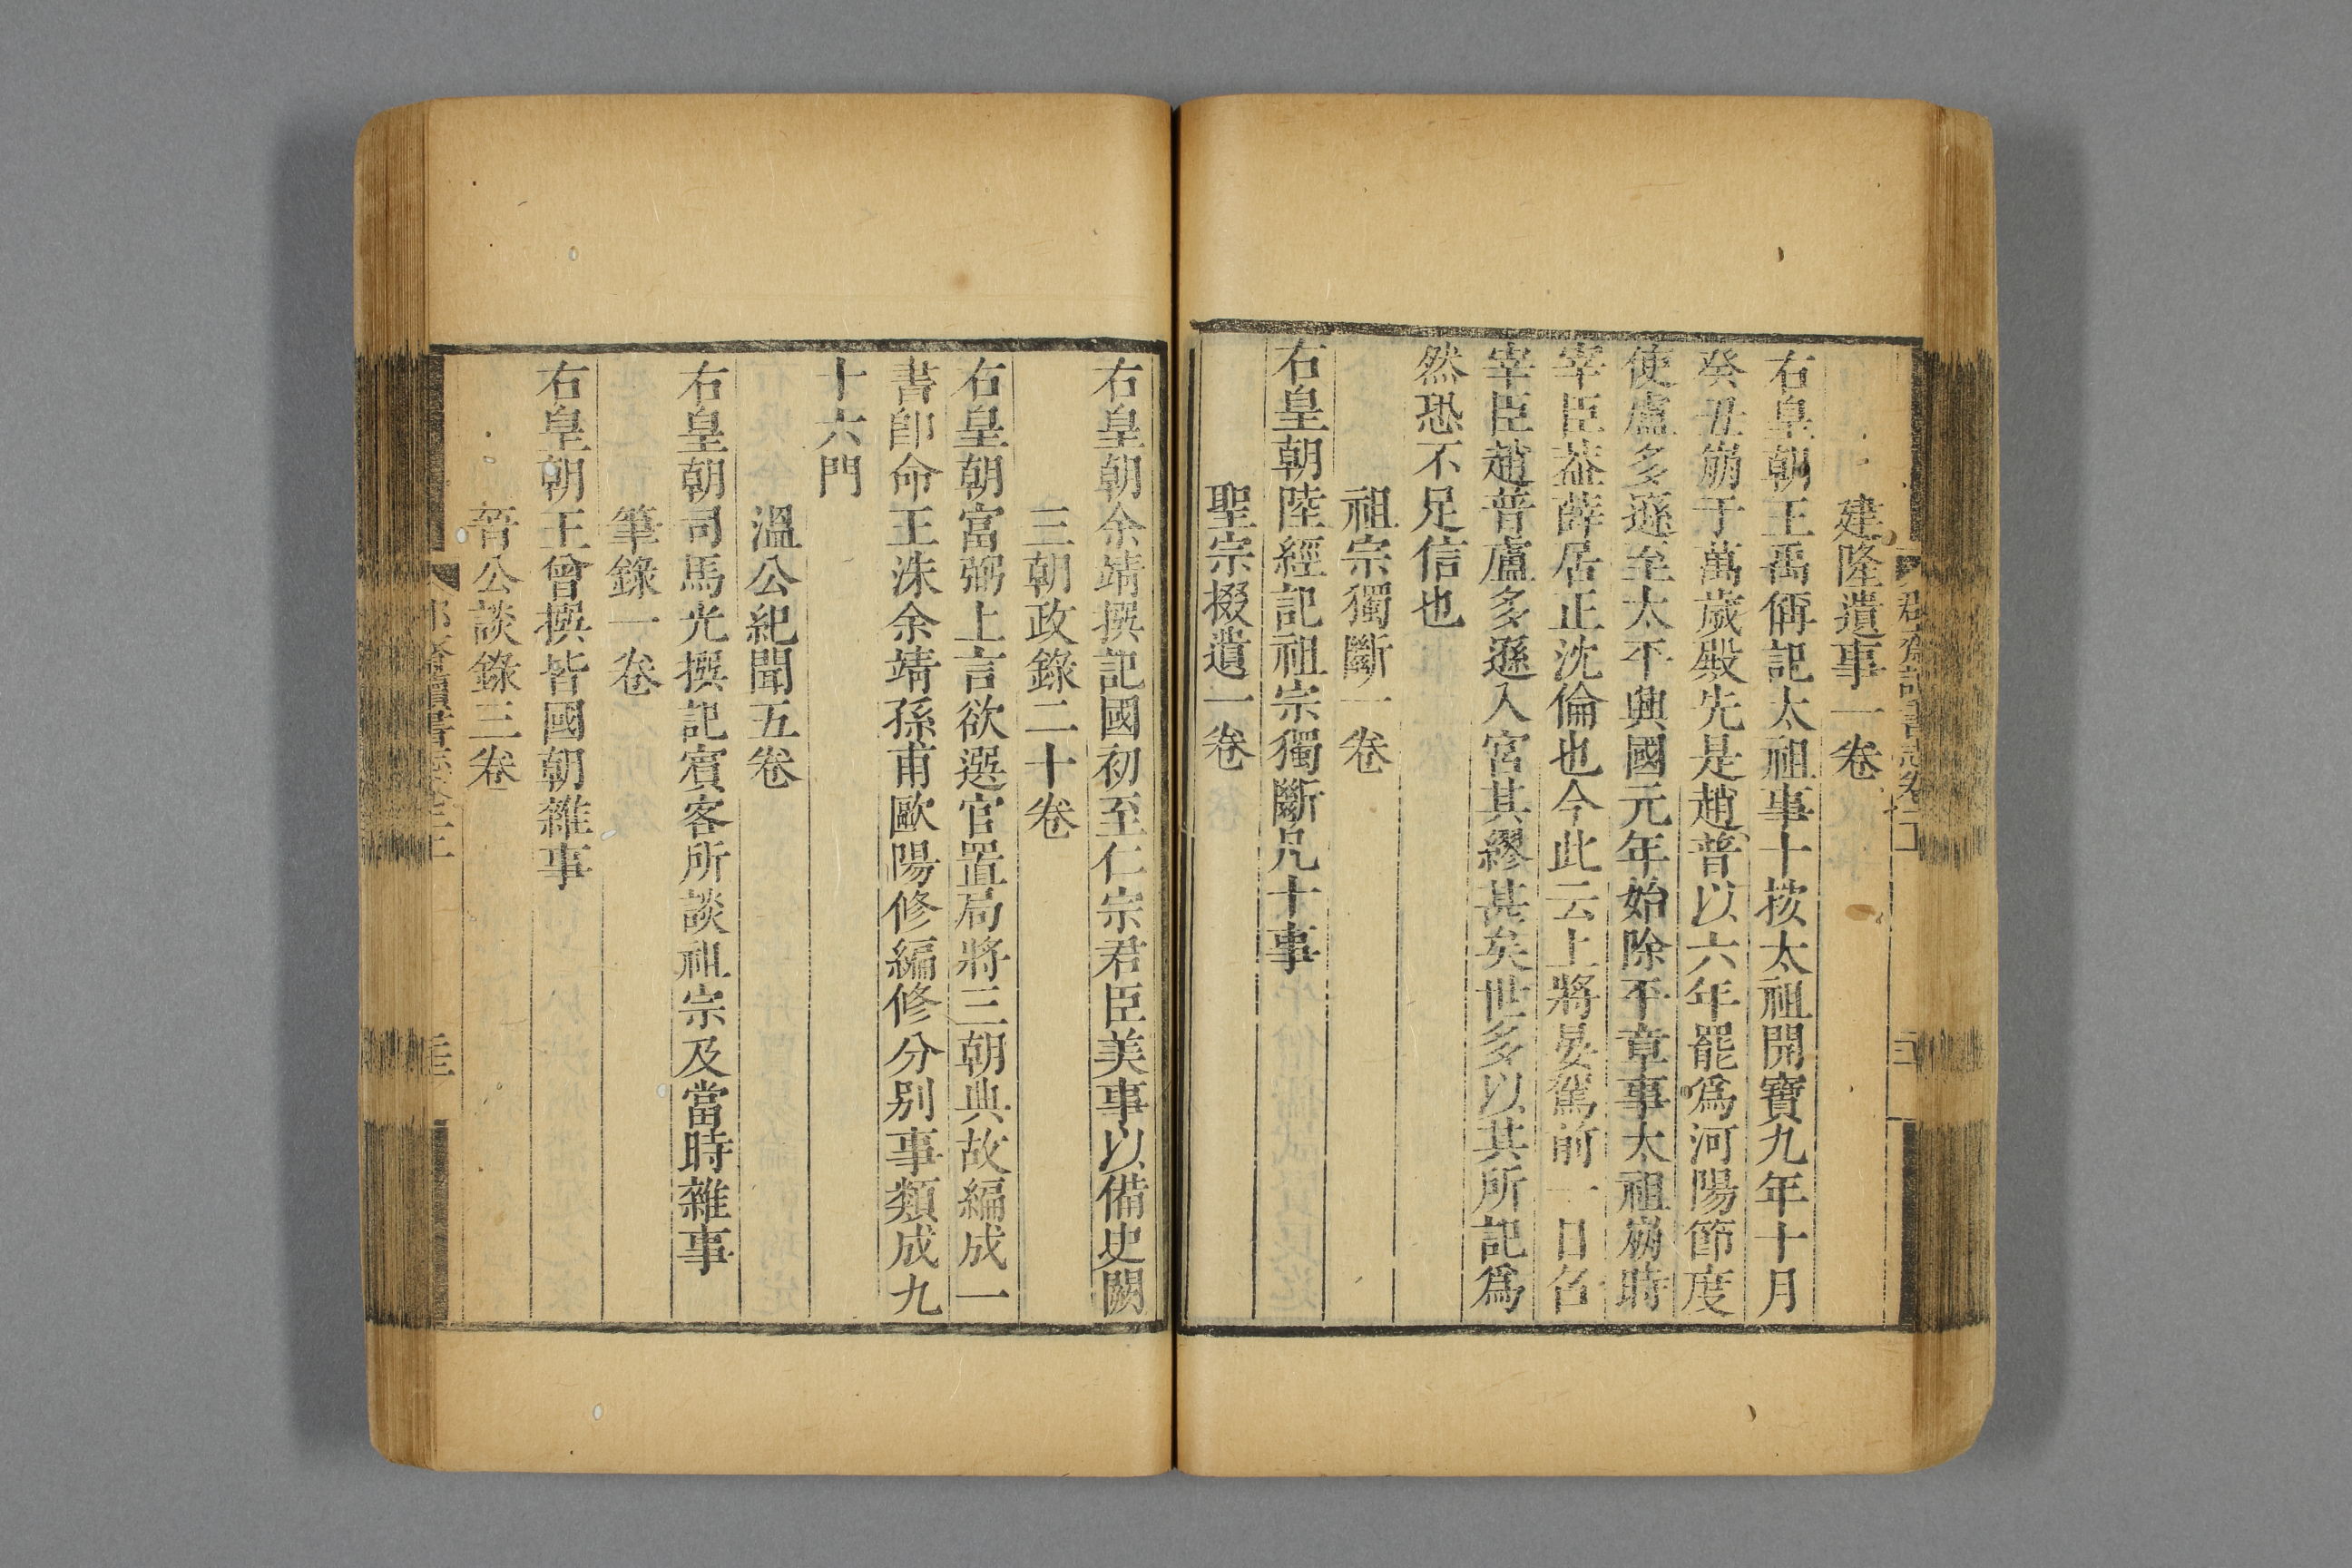 建隆遺事一卷
右皇朝王禹偁記太祖事十按太祖開寶九年十月
癸丑崩于萬歲殿先是趙普以六年罷爲河陽節度
使盧多遜至太平興國元年始除平章事太祖崩時
宰臣葢薛居正沈倫也今此云上將晏駕前一日召
宰臣趙普盧多遜入宮其繆甚矣世多以其所記爲
然恐不足信也
祖宗獨斷一卷
右皇朝陸經記祖宗獨斷凡十事
聖宗掇遺一卷
右皇朝余靖撰記國初至仁宗君臣美事以備史闕
三朝政錄二十卷
右皇朝富弼上言欲選官置局將三朝典故編成一
書卽命王洙余靖孫甫歐陽修編修分別事類成九
十六門
溫公紀聞五卷
右皇朝司馬光撰記賓客所談祖宗及當時雜事
筆錄一卷
右皇朝王曾撰皆國朝雜事
晉公談錄三卷